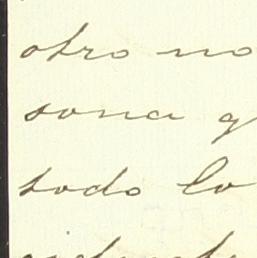 otro no
sona q
todo lo